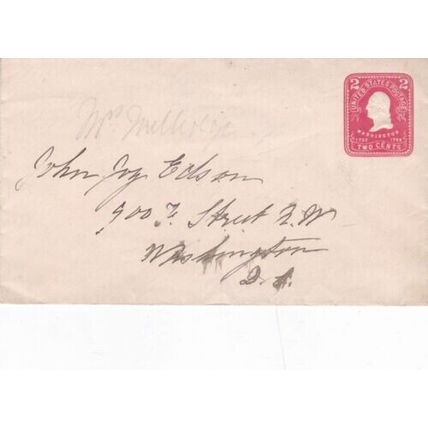 2 2
UNITED STATES POSTAGE
WASHINGTON
1732 1799
TWO CENTS
Mr
John Joy Edson
900 F. Street N.W
Washington
D.C.